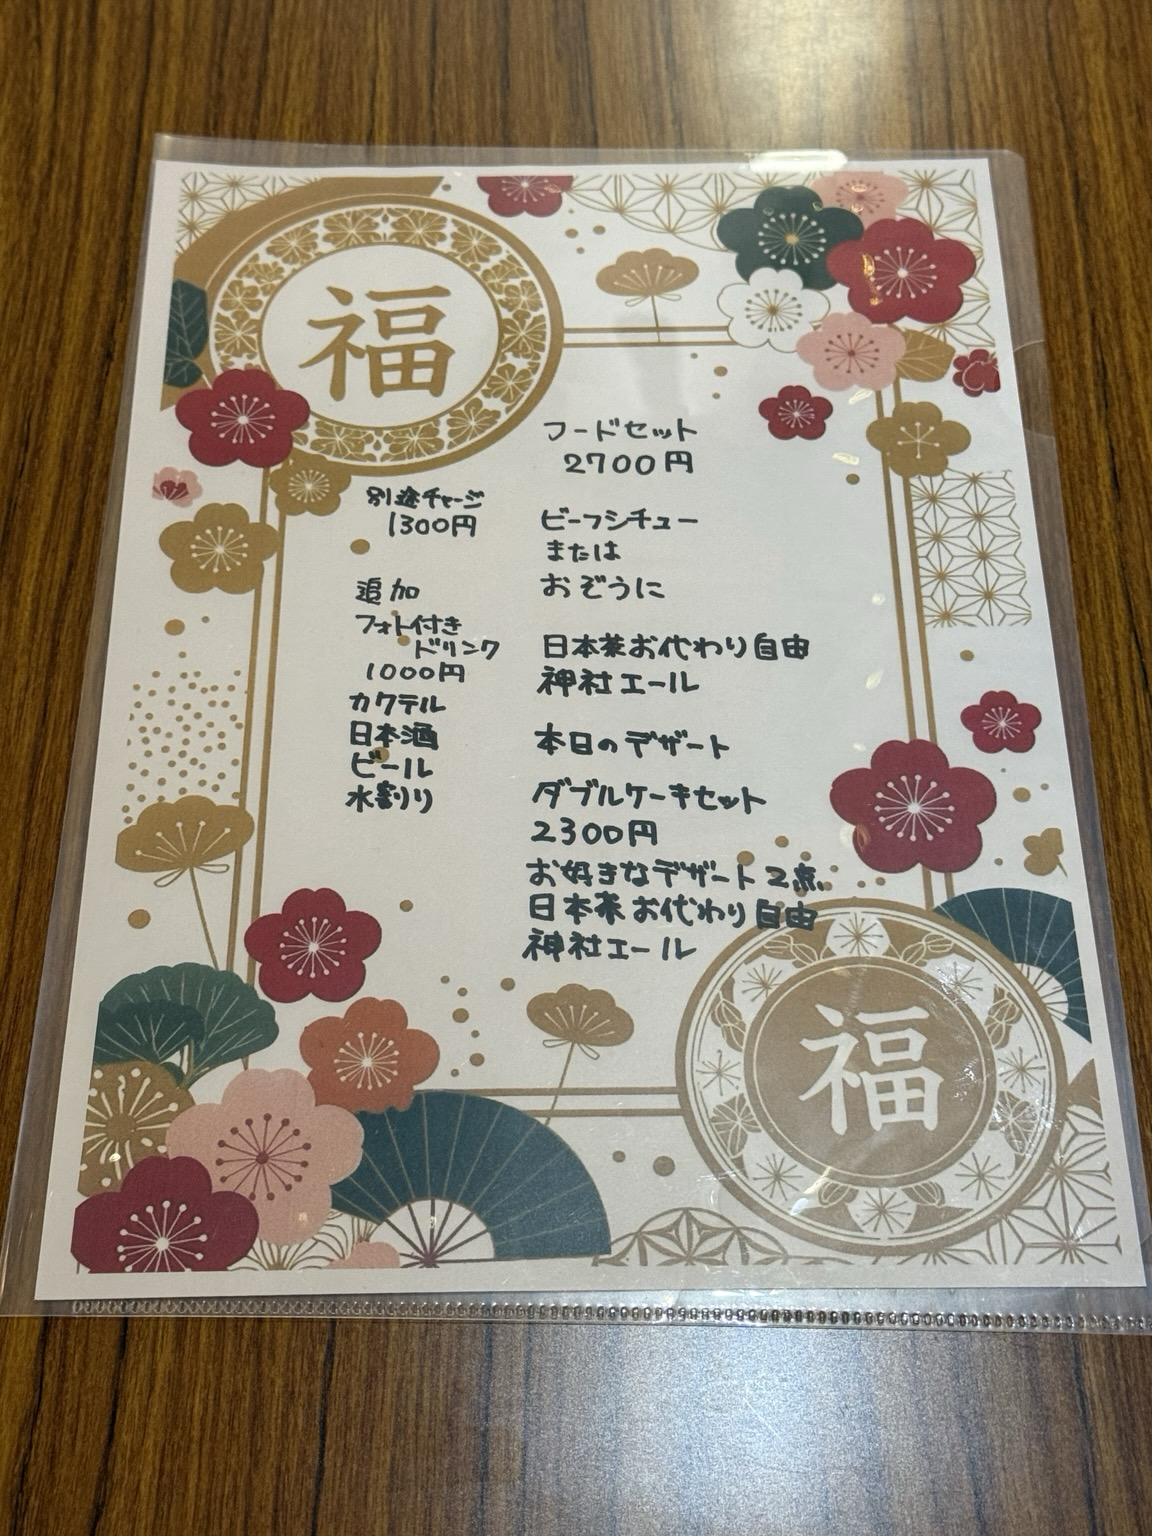 福
フードセット
2700円
ビーフシチュー
または
おぞうに
日本茶お代わり自由
神社エール
本日のデザート
ダブルケーキセット
2300円
お好きなデザート2点
日本茶お代わり自由
神社エール
別途チャージ
1300円
追加
フォト付き
ドリンク
1000円
カクテル
日本酒
ビール
水割り
福